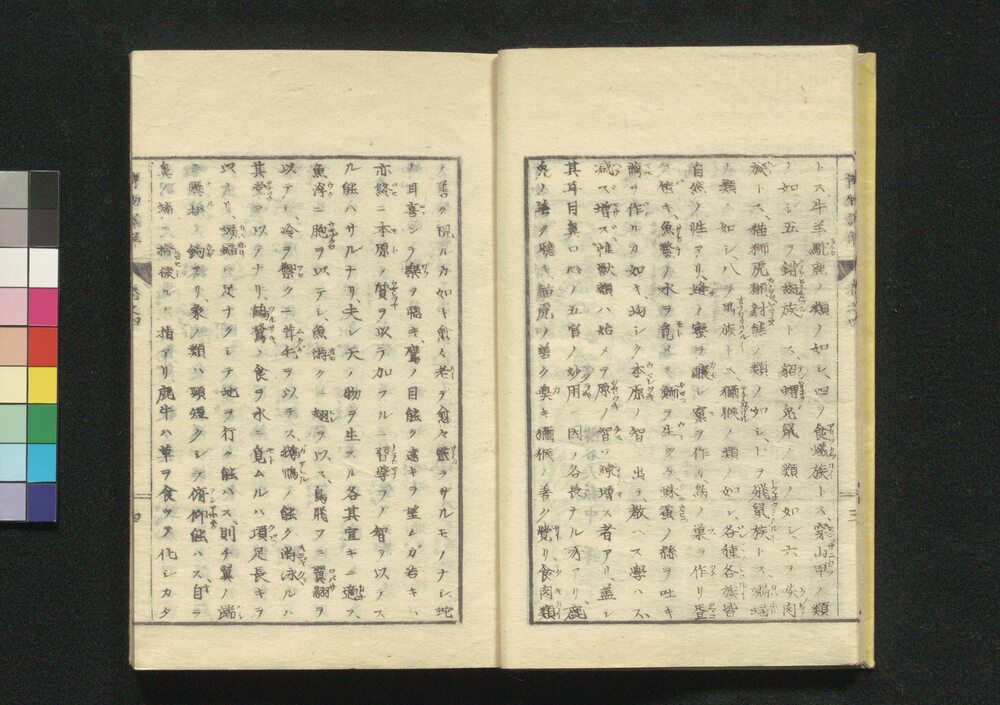 トス、牛羊鹿ノ類ノ如シ、四ヲ食蟻族トス、穿山甲ノ類
ノ如シ五ヲ錯齒族トス、貂蝟兎鼠ノ類ノ如シ、六ヲ食肉
族トス、猫獅虎獺豺熊ノ類ノ如シ、七ヲ飛鼠族トス、蝙蝠
ノ類ノ如シ、八ヲ禺族トス獼猴ノ類ノ如シ、各種各族皆
自然ノ性アリ、蜂ノ蜜ヲ釀シ窠ヲ作リ鳥ノ巣ヲ作リ蛋
ヲ抱キ、魚鼈ノ水ヲ覓メ鰤ヲ生ジ蚕ノ絲ヲ吐キ
繭ヲ作ルカ如キ均シク本原ノ智ニ出ヅ、教ハズ學ハス、
減ズ増ズ唯獸類ハ始メテ原ノ智ヲ增ス者アリ蓋シ
其耳目鼻口心ノ五官ノ妙用ニ因ノ各長ナル所アリ、鹿
兎ノ善ク聽キ猫虎ノ善ク臭キ獼猴ノ善ク覺リ食肉類
ノ善ク視ルカ如キ愈々老ヲ愈々靈ヲザルモノナシ蛇
ノ耳喜ンテ樂ヲ聽キ、鷹ノ目能ク遠キヲ望ムガ若キハ
亦終ニ本原ノ質ヲ以テ加フルニ習學ヲノ智ヲ以テス
ル能ハサルナリ、夫レ天ノ物ヲ生スル各其宜キニ適ス
魚浮ニ胞ヲ以テシ、魚游クニ翅ヲ以ス、鳥飛フニ翼翮ヲ
以テシ、冷ヲ禦クニ茸毛ヲ以テス鵞鴨ノ能ク游泳ルハ
其掌ヲ以テナリ、鷺ノ食ヲ水ニ覓ムルハ項足長キヲ
以テナリ、蝙蝠ハ足ナクシテ地ヲ行ク能ハス、則チ翼ノ端
ニ鉤アリ、象ノ類ハ頸短クシテ俯仰能ハス、自ラ
鼻ノ端ニ拾掇ルノ指アリ鹿牛ハ草ヲ食ツテ化シカタ
三
四